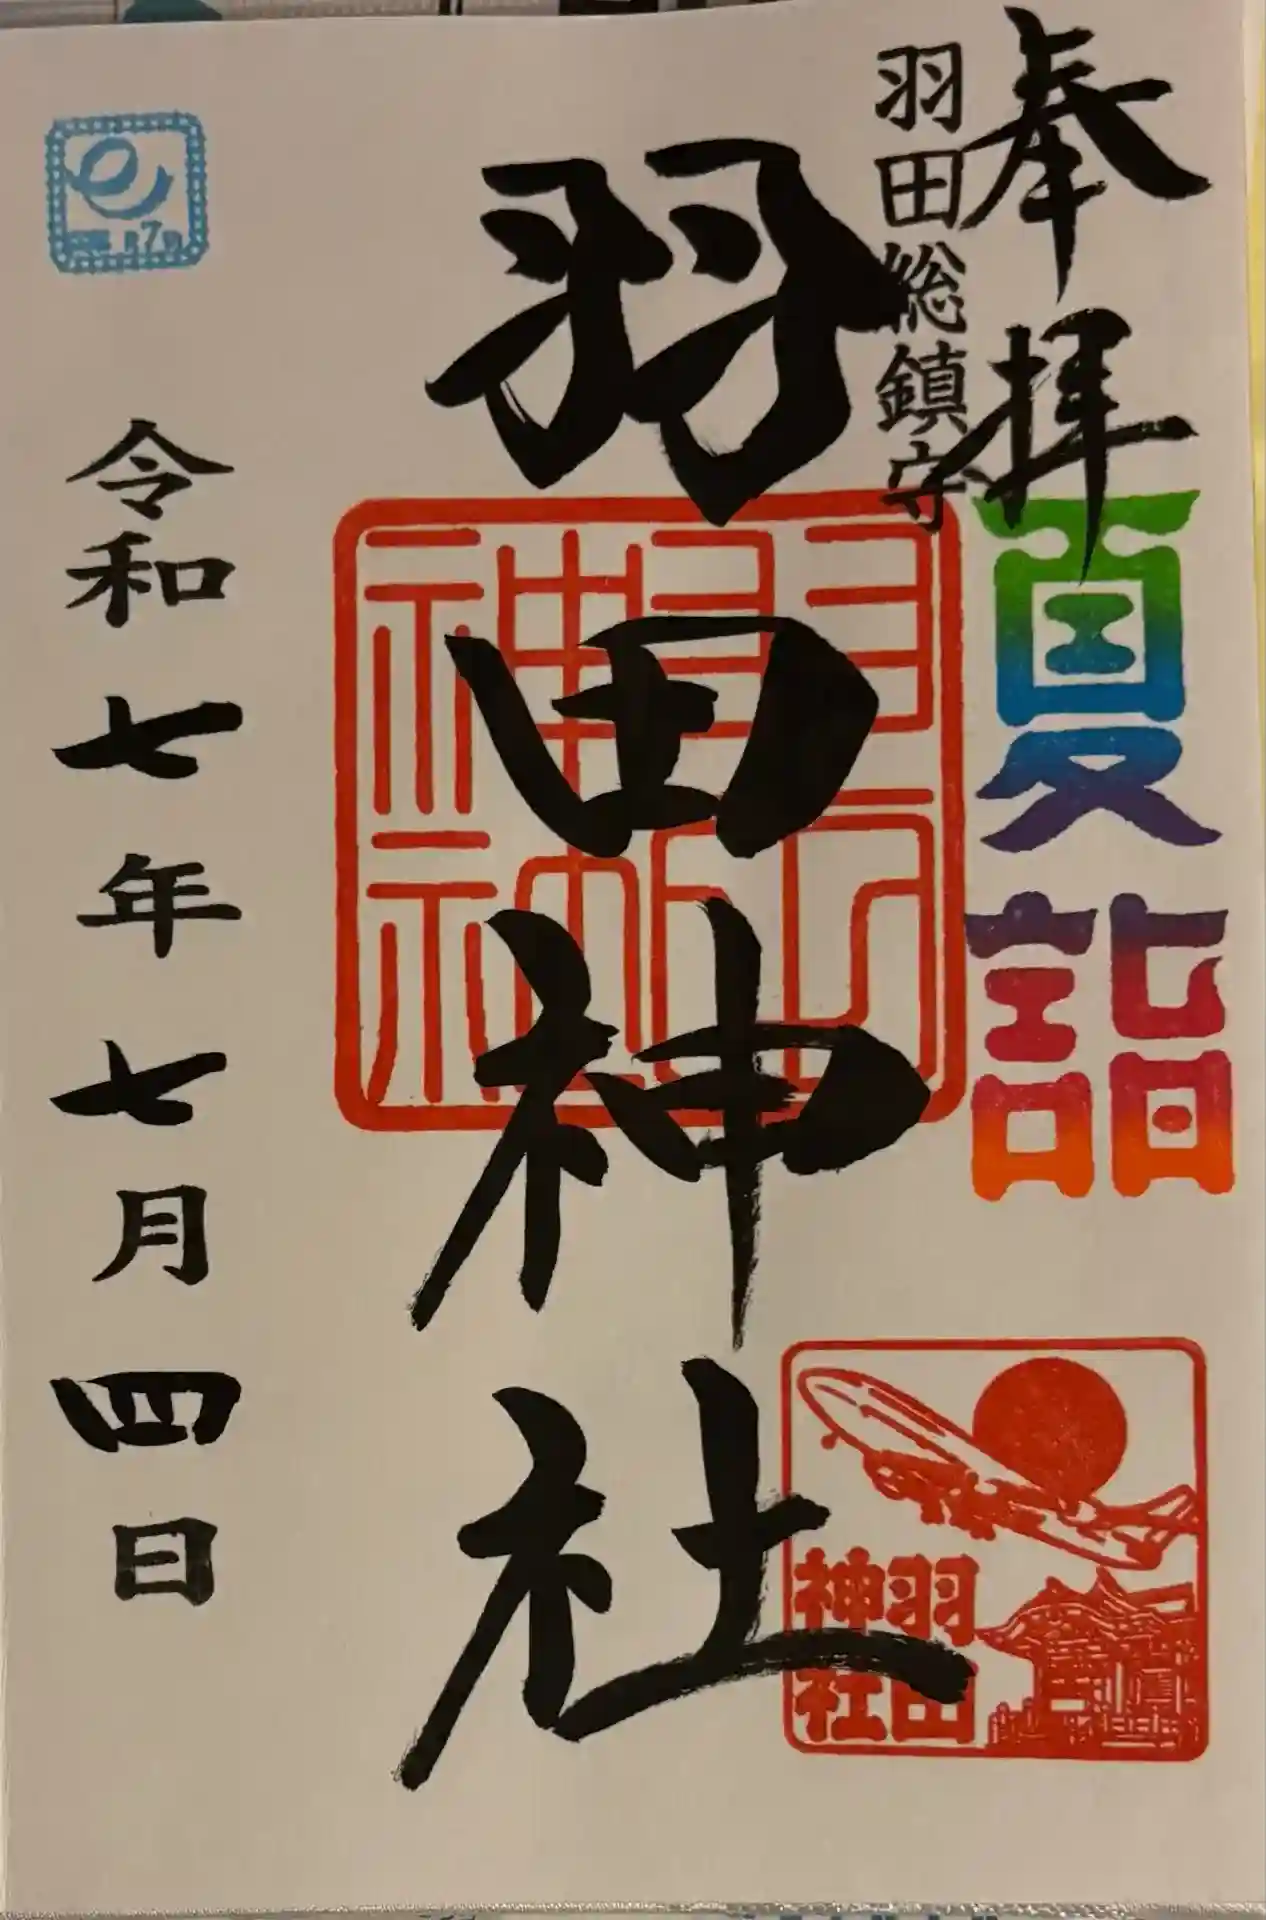 奉拝
夏詣
羽田総鎮守
羽田神社
羽田
神社
羽田
神社
令和七年七月四日